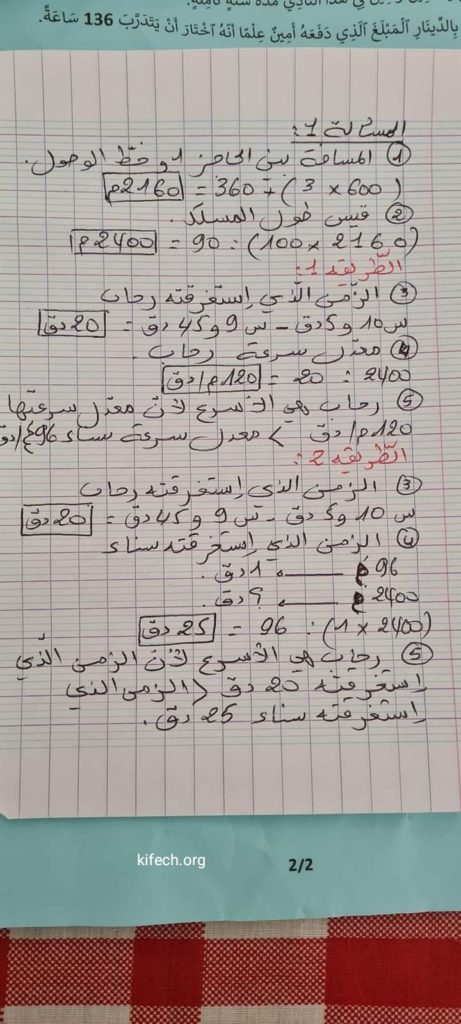 فِي هَذَا النَّادِي مُدَّةَ سَنَةٍ
بِالدِّينَارِ الْمَبْلَغَ الَّذِي دَفَعَهُ أَمِينٌ عِلْمًا أَنَّهُ اخْتَارَ أَنْ يَتَدَرَّبَ 136 سَاعَةً.
المسألة 1:
① المسافة بين الحاجز 1 وخطّ الوصول.
(600 × 3) + 360 = 2160م
② قيس طول المسلك.
(2160 × 100) : 90 = 2400م
الطّريقة 1:
③ الزّمن الّذي إستغرقته رحاب
س10 و5دق - س9 و45دق = 20 دق
④ معدّل سرعة رحاب.
2400 : 20 = 120م/دق
⑤ رحاب هي الأسرع لأنّ معدّل سرعتها
120م/دق > معدل سرعة سناء 96م/دق
الطّريقة 2:
③ الزّمن الذي إستغرقته رحاب
س10 و5دق - س9 و45دق = 20دق
④ الزّمن الذي إستغرقته سناء
96م ــــ 1دق.
2400م ــــ ؟ دق.
(2400 × 1) : 96 = 25 دق
⑤ رحاب هي الأسرع لأنّ الزمن الّذي
إستغرقته 20 دق < الزمن الذي
إستغرقته سناء 25 دق.
kifech.org
2/2